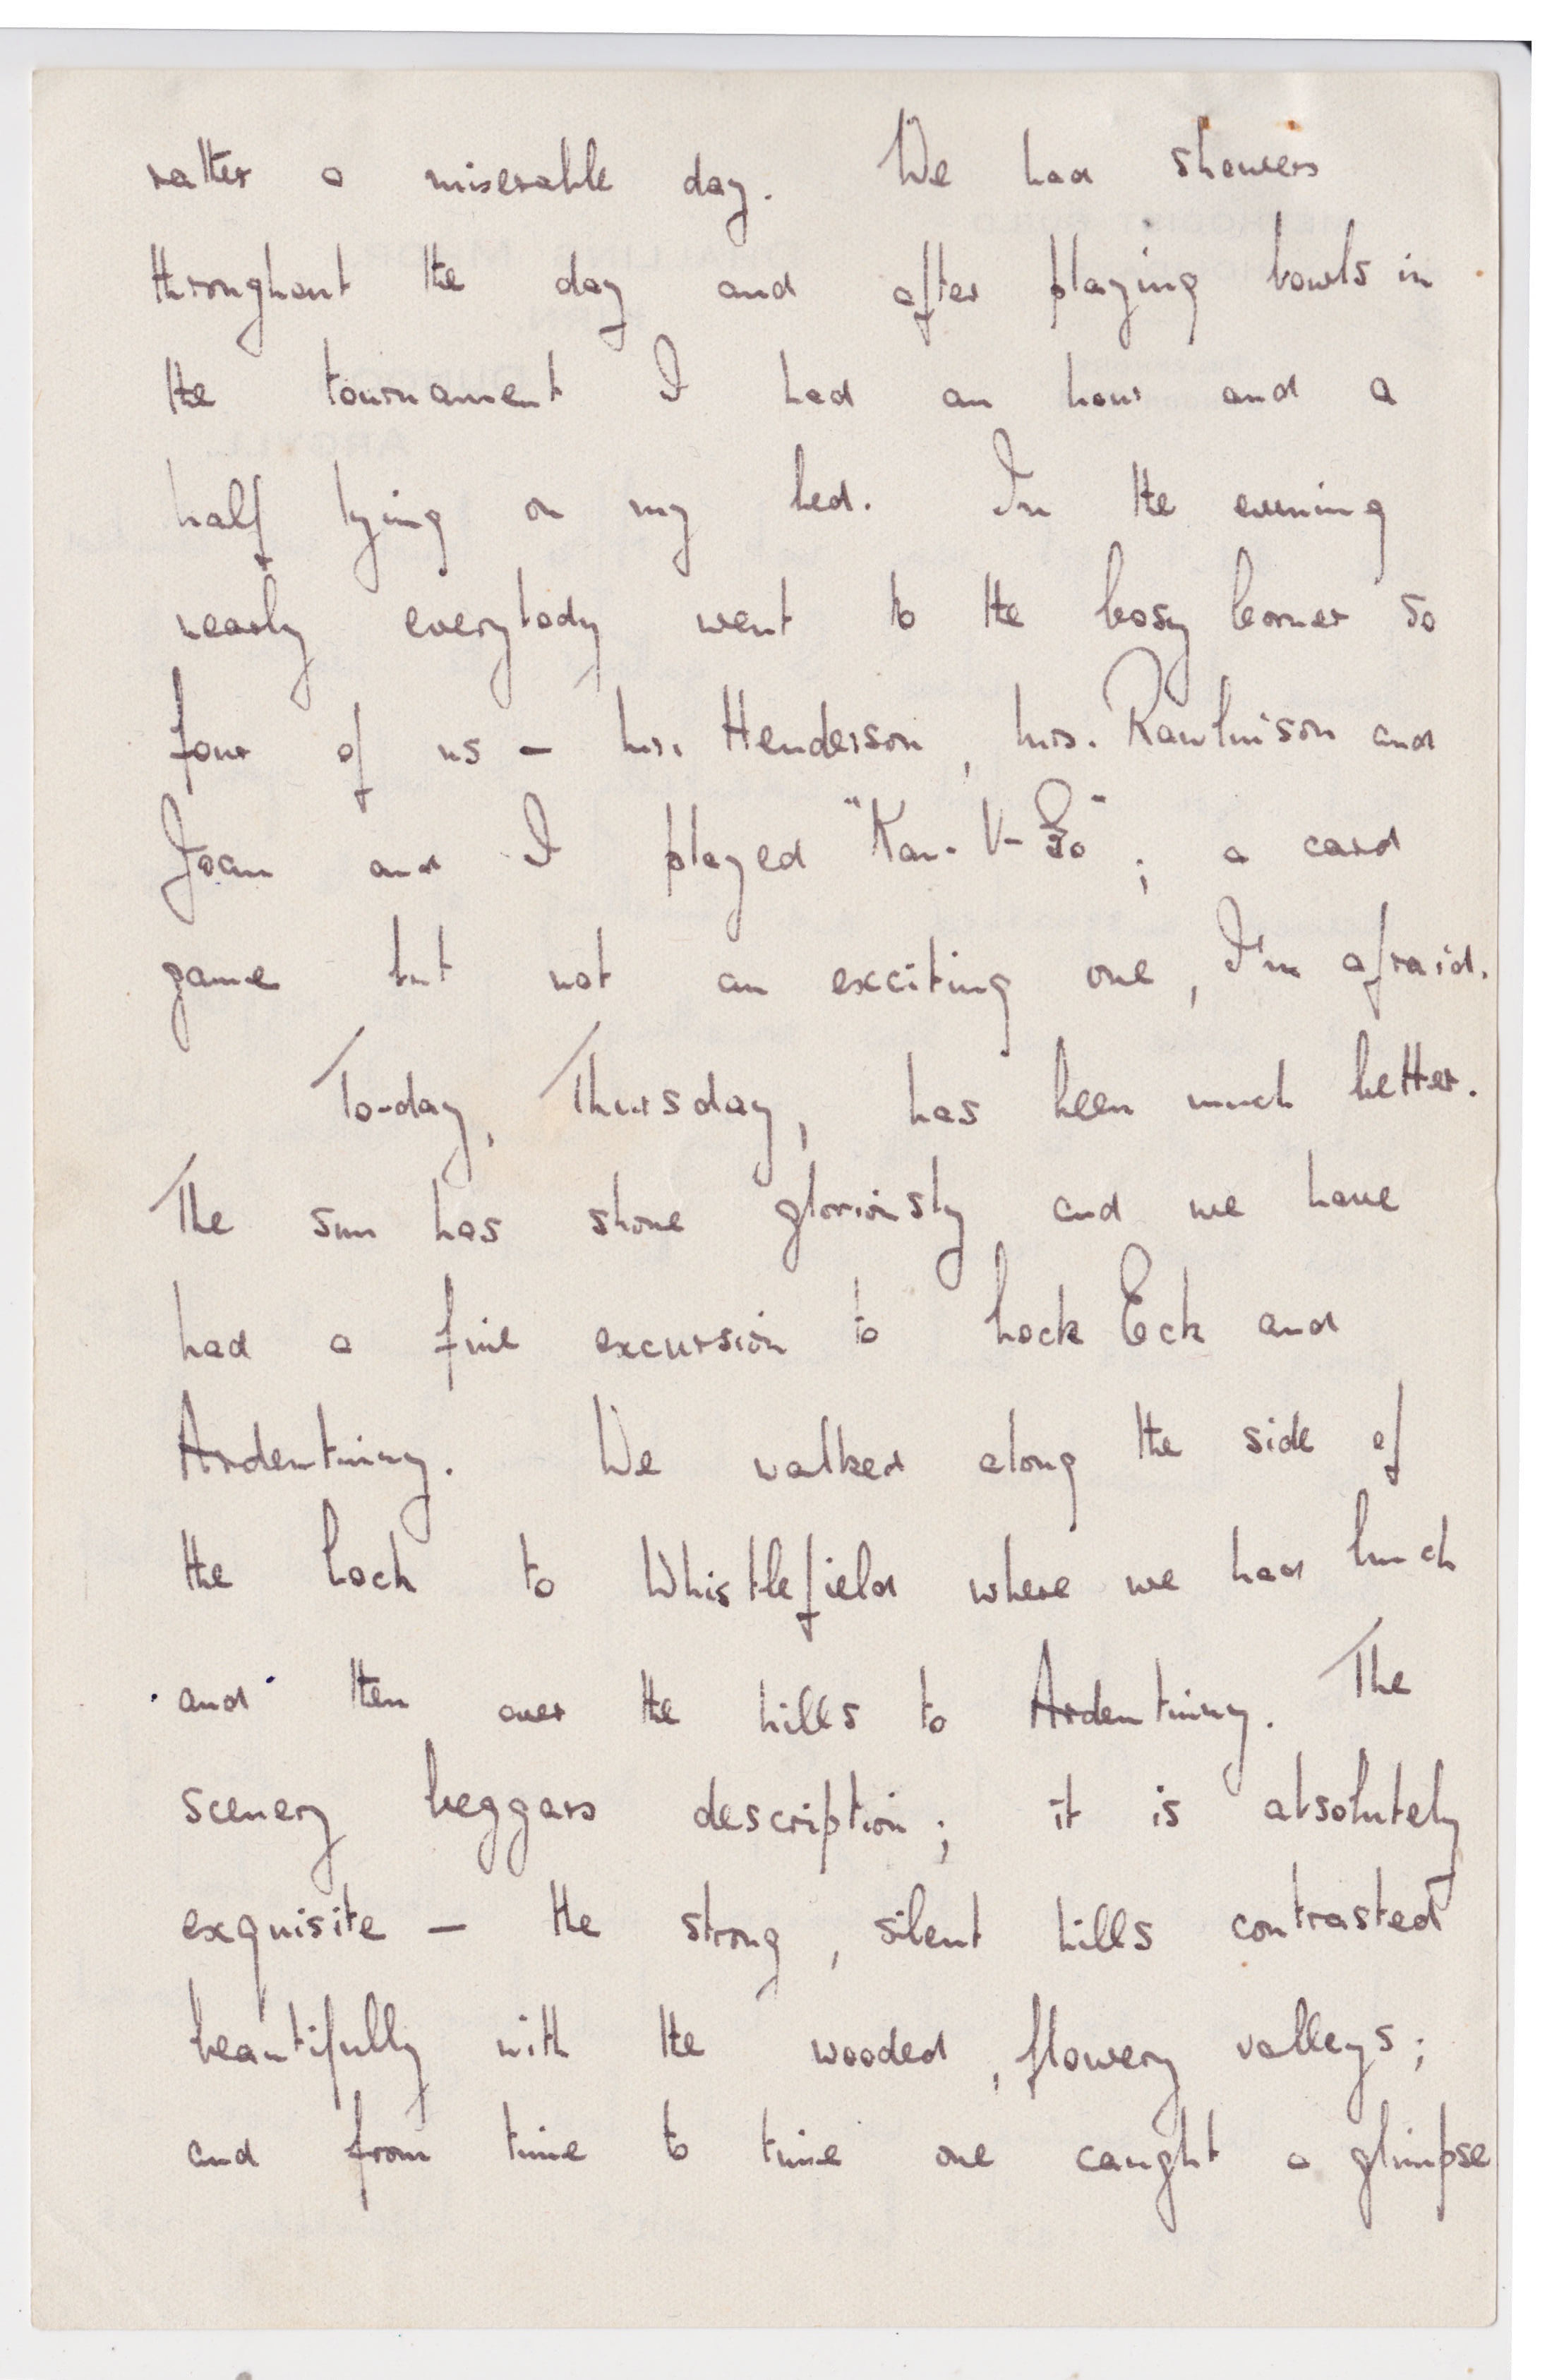 rather a miserable day. We had showers
throughout the day and after playing bowls in
the tournament I had an hour and a
half lying on my bed. In the evening
nearly everybody went to the Cosy Corner so
four of us – Mr. Henderson, Mrs. Rawlinson and
Joan and I played "Kan-U-Go"; a card
game but not an exciting one, I'm afraid.
To-day, Thursday, has been much better.
The sun has shone gloriously and we have
had a fine excursion to Lock Eck and
Ardentinny. We walked along the side of
the Loch to Whistlefield where we had lunch
and then over the hills to Ardentinny. The
scenery beggars description; it is absolutely
exquisite – the strong, silent hills contrasted
beautifully with the wooded, flowery valleys;
and from time to time one caught a glimpse